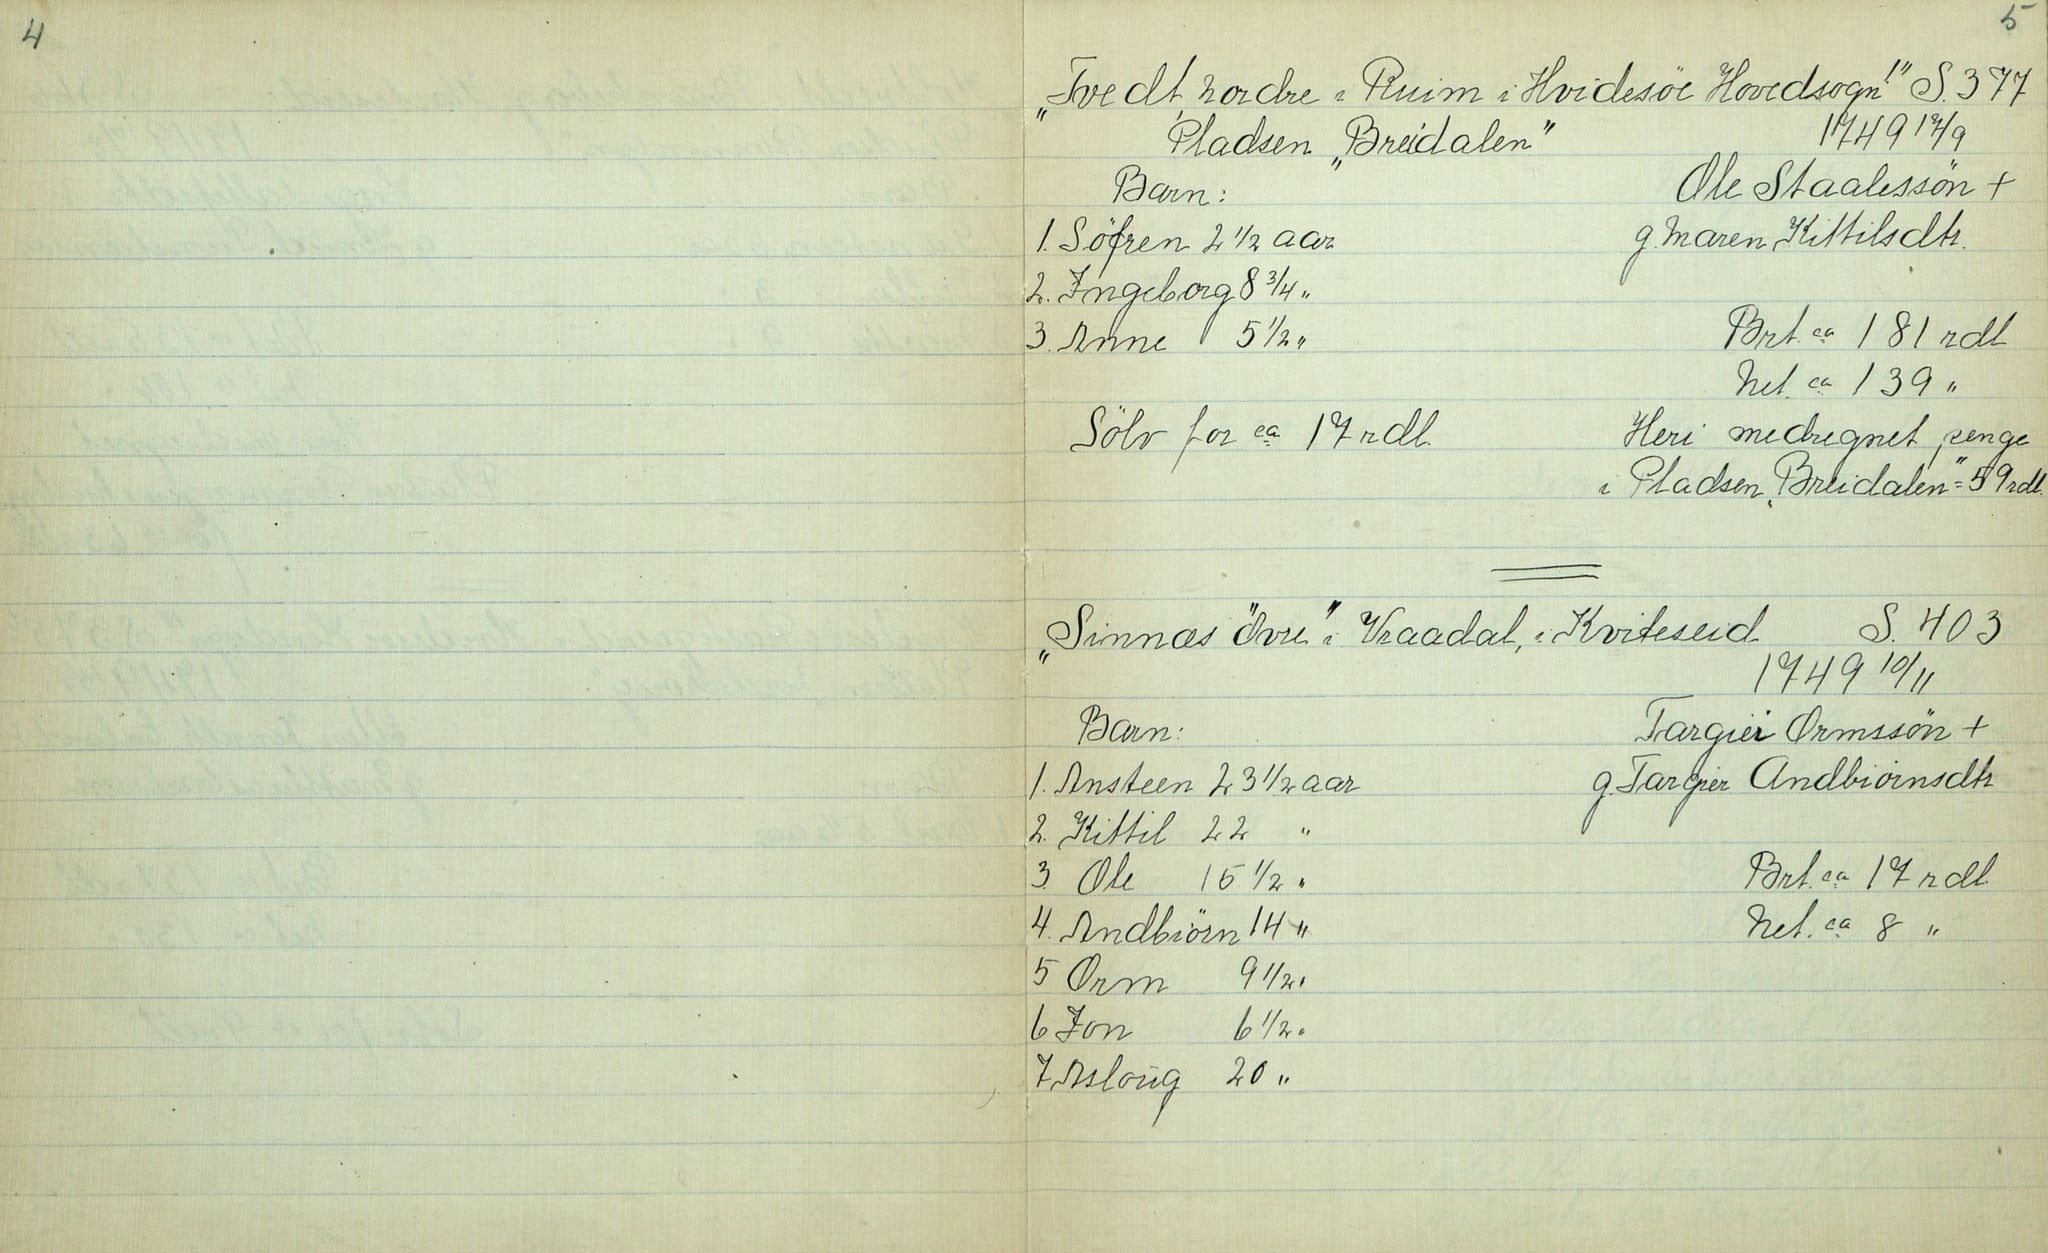 4
5
„Tvedt, nordre i Ruim i Hvidesöe Hovedsogn!" S. 377
Pladsen „Breidalen" 1749 17/9
Barn: Ole Staalessön +
1. Söfren 2 1/2 aar g. Maren Kittilsdtr.
2. Ingeborg 8 3/4 „
3. Anne 5 1/2 „ Brt. ca 181 rdl
Net. ca 139 „
Sölv for ca 17 rdl. Heri medregnet penge
i Pladsen „Breidalen" = 59 rdl.
„Sinnæs övre" i Vraadal, i Kviteseid S. 403
1749 10/11
Barn: Targiei Ormssön +
1. Ansteen 23 1/2 aar g. Targier Andbiörnsdtr
2. Kittil 22 „
3. Ole 15 1/2 „ Brt. ca 17 rdl
4. Andbiörn 14 „ Net. ca 8 „
5 Orm 9 1/2 „
6 Jon 6 1/2 „
7. Asloug 20 „